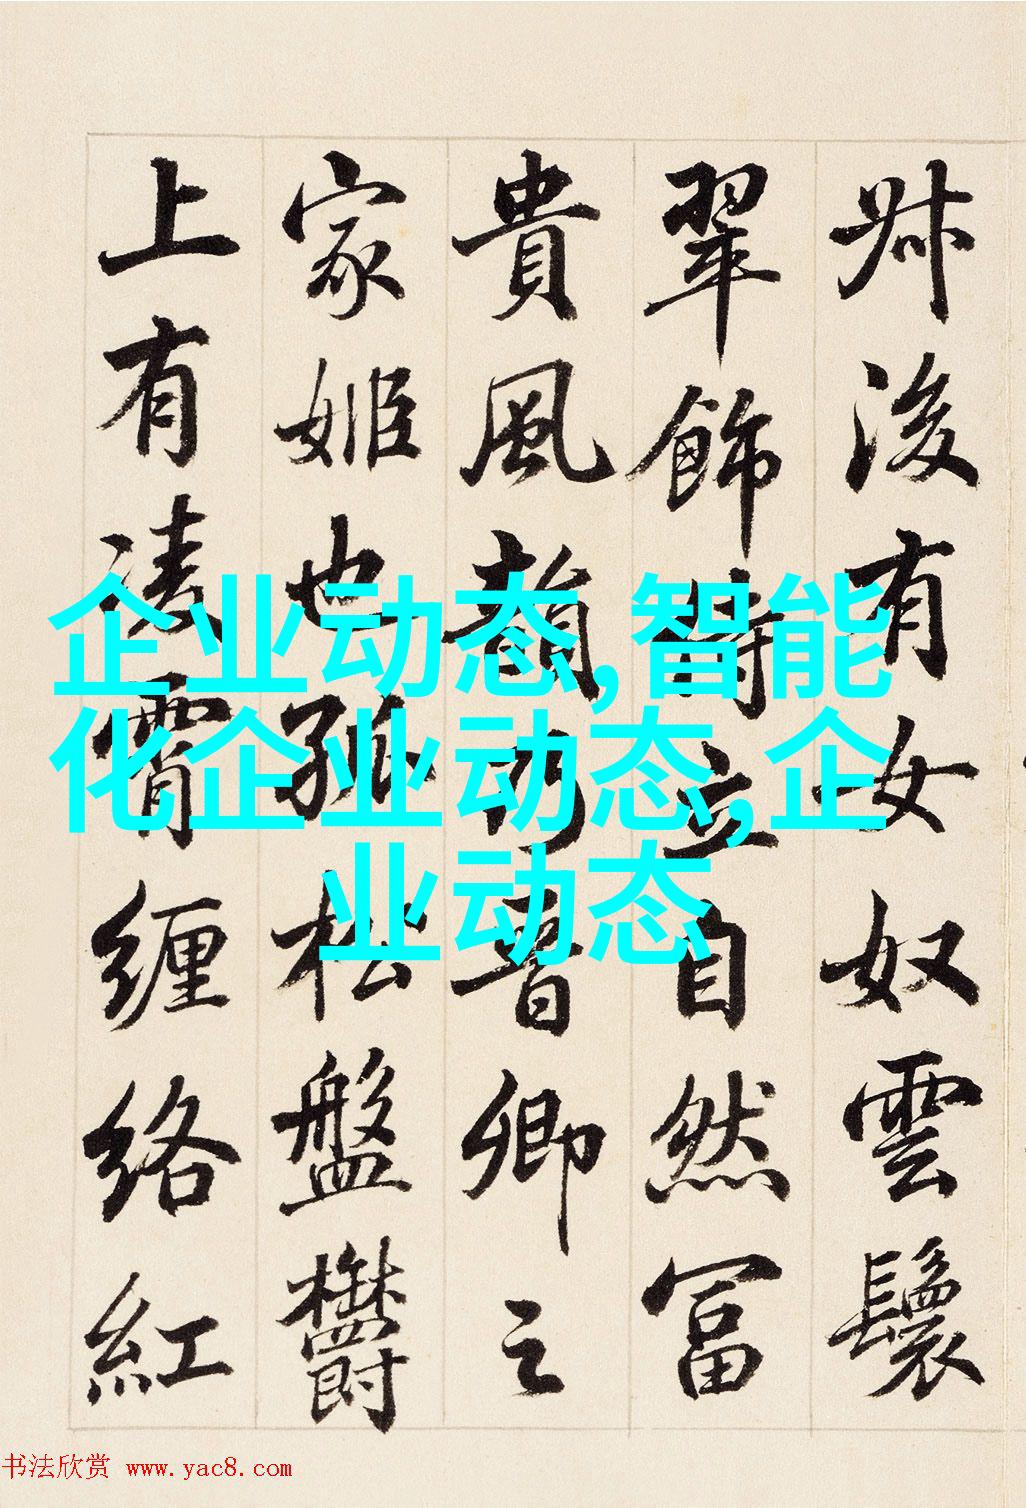 叔後有女奴雲鬟
翠飾侍立自然富
貴風韻乃晉卿之
家姬也孤松盤鬱
上有凌霄纏絡紅
企业动态,智能
化企业动态,企
业动态
书法欣赏 www.yac8.com